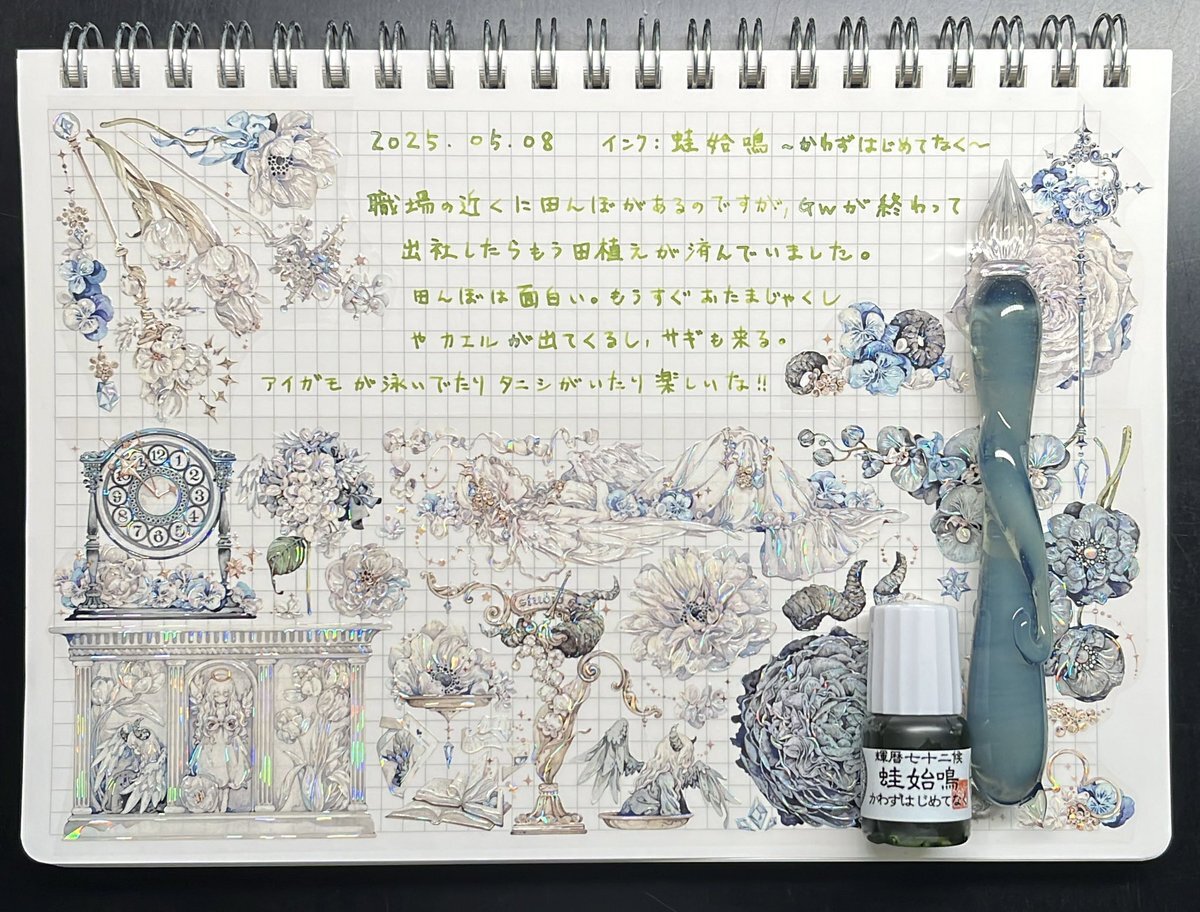 2025.05.08 インク:蛙始鳴 ~かわずはじめてなく~
職場の近くに田んぼがあるのですが,GWが終わって
出社したらもう田植えが済んでいました。
田んぼは面白い。もうすぐおたまじゃくし
やカエルが出てくるし,サギも来る。
アイガモが泳いでたりタニシがいたり楽しいな!!
12
1
2
3
4
5
6
7
8
9
10
11
輝暦七十二候
蛙始鳴
かわずはじめてなく